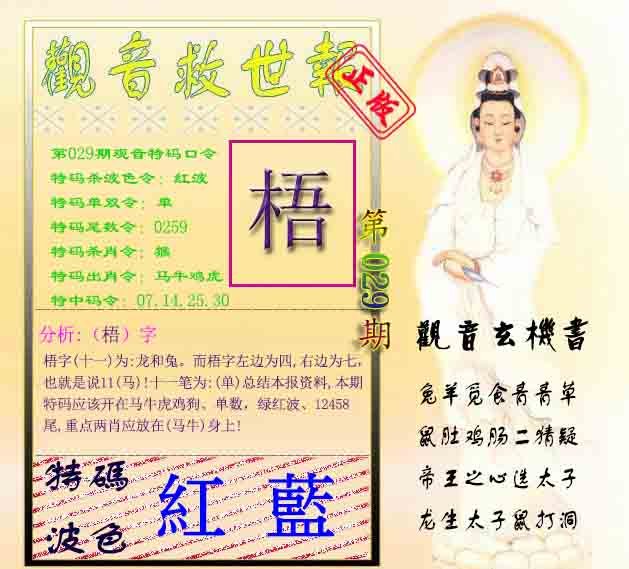 觀音救世報
正版
第029期观音特码口令
特码杀波色令：紅波
特码单双令：单
特码尾数令：0259
特码杀肖令：猴
特码出肖令：马牛鸡虎
特中码令：07.14.25.30
梧
第029期
分析:（梧）字
梧字(十一)为:龙和兔。而梧字左边为四,右边为七,
也就是说11(马)!十一笔为:(单)总结本报资料,本期
特码应该开在马牛虎鸡狗、单数，绿红波、12458
尾,重点两肖应放在(马牛)身上!
特碼
波色
紅 藍
觀音玄機書
兔羊觅食青青草
鼠肚鸡肠二猜疑
帝王之心选太子
龙生太子鼠打洞